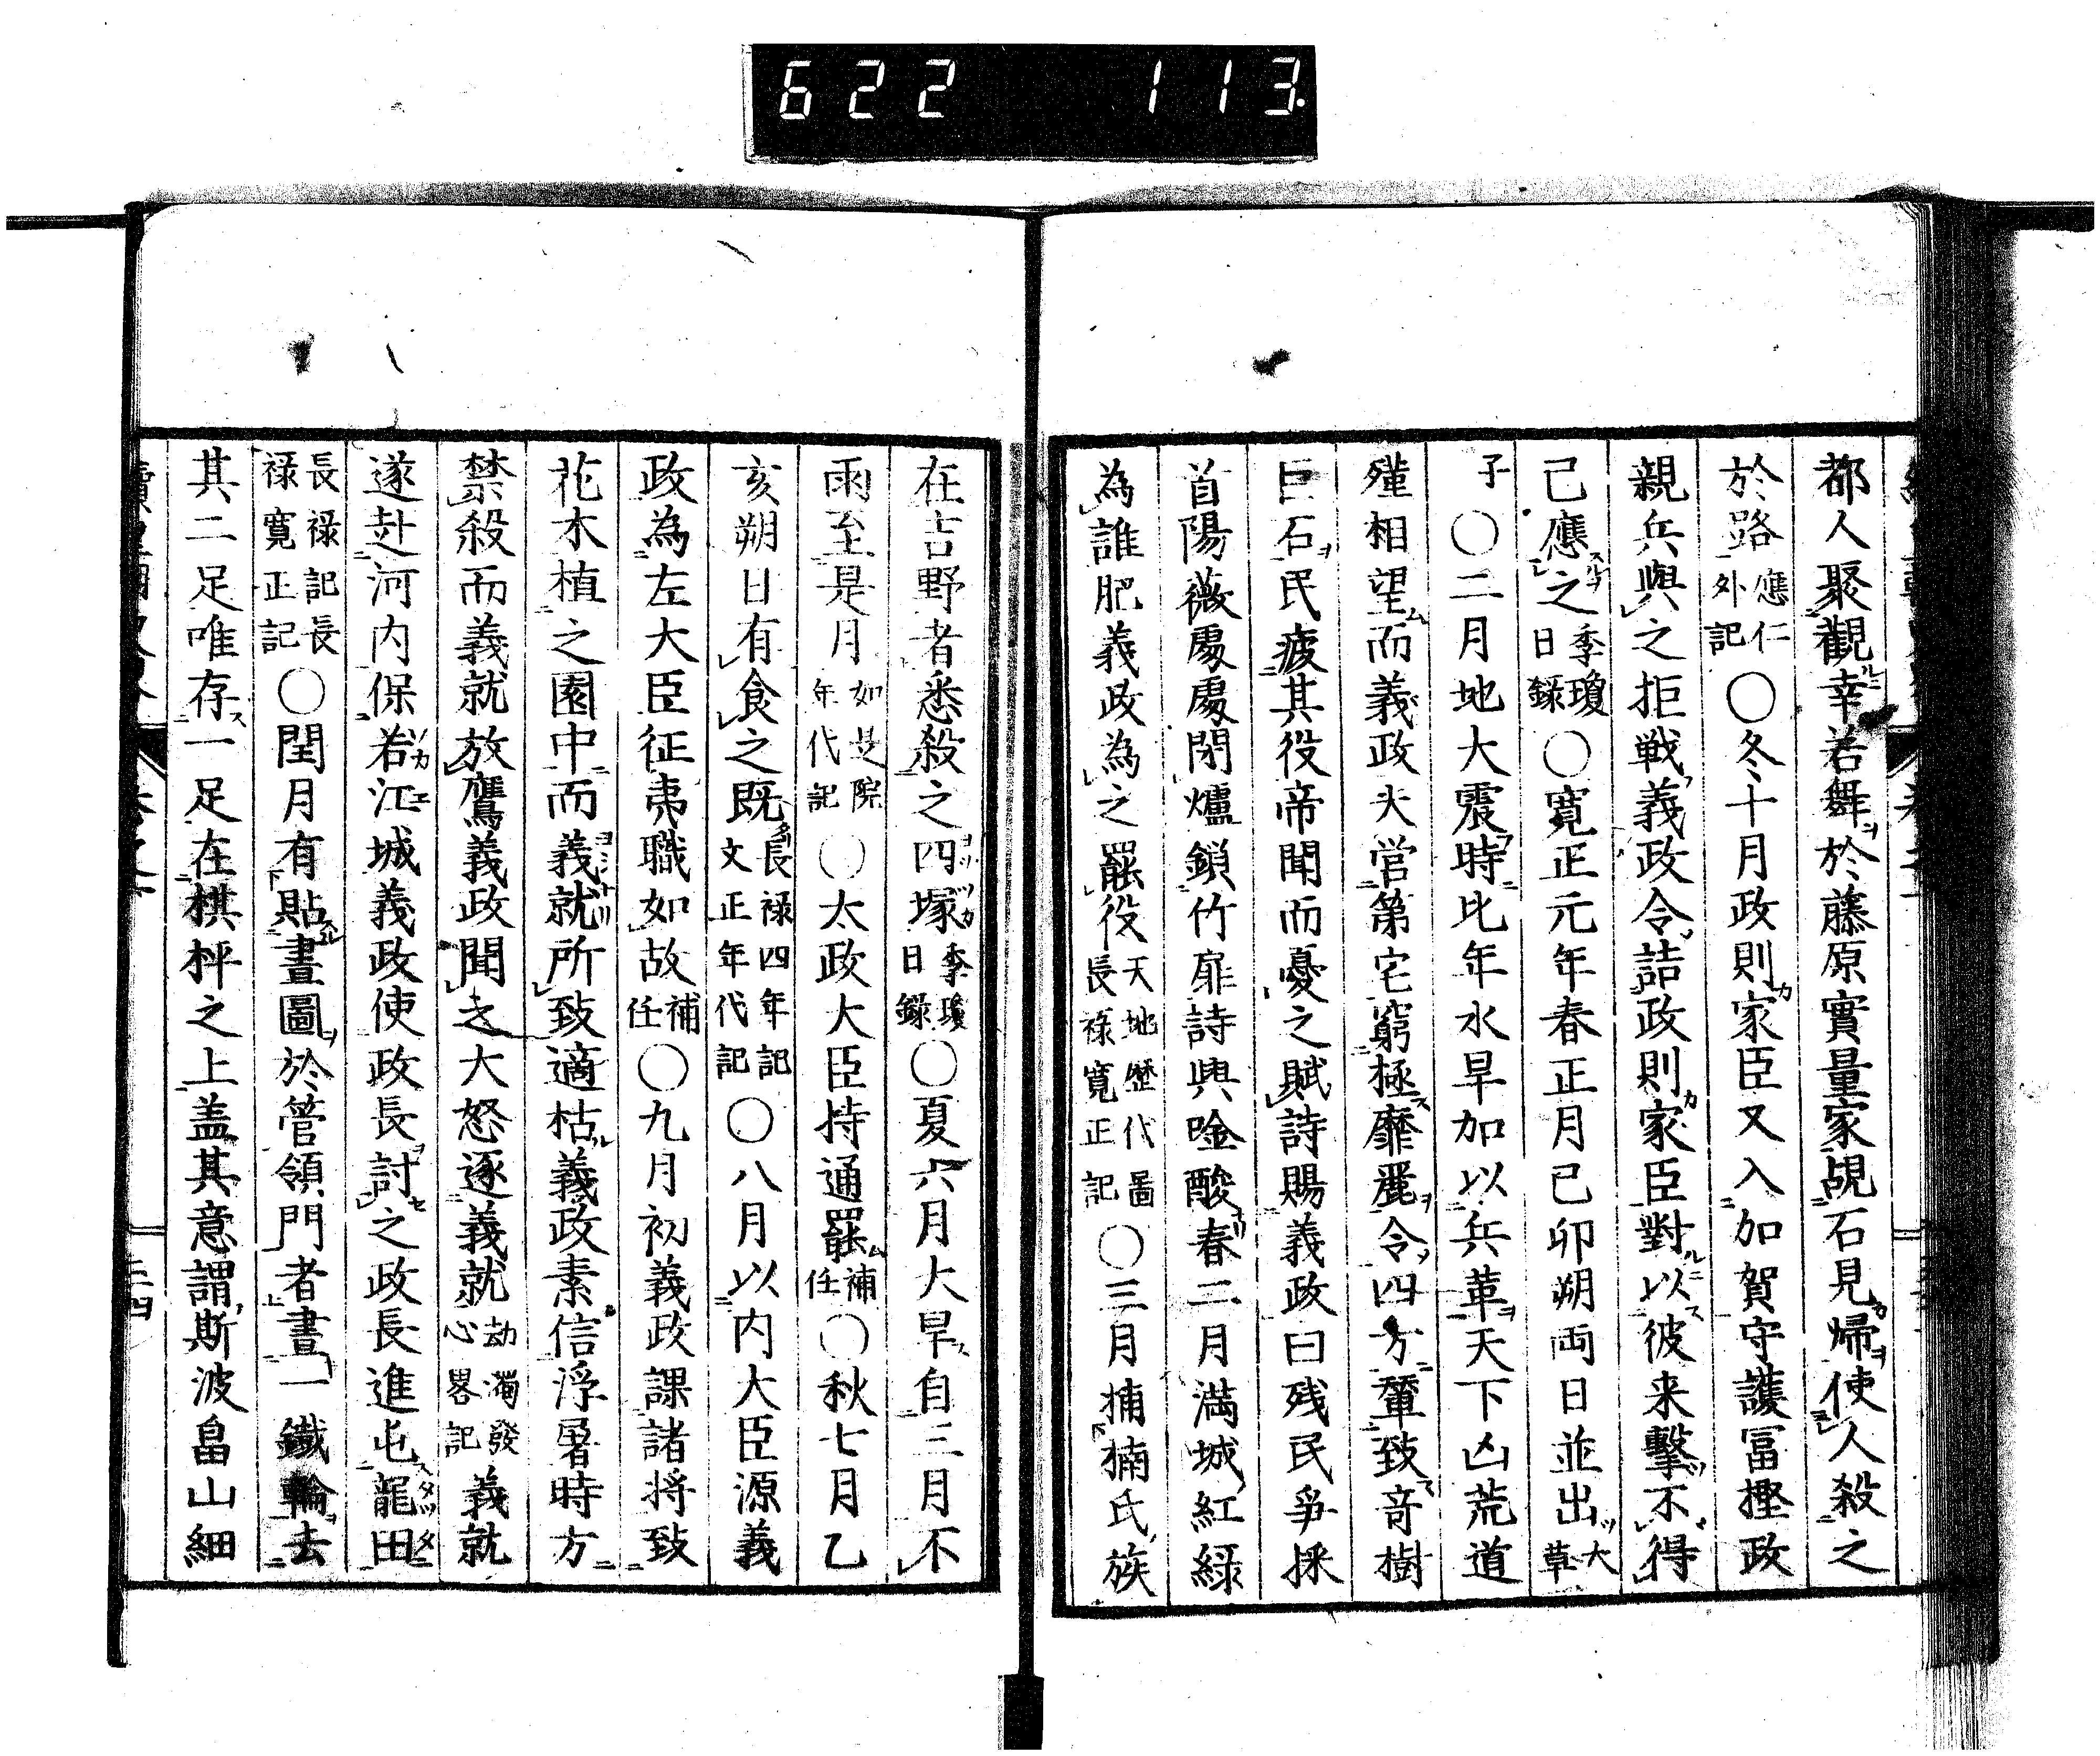 622 113
都人聚觀幸若舞於藤原實量家覘石見帰使人殺之
於路應仁外記〇冬十月政則家臣又入加賀守護冨樫政
親兵與之拒戦義政令詰政則家臣對以彼来擊不得
已應之季瓊日録〇寛正元年春正月已卯朔両日並出大草
子〇二月地大震時比年水旱加以兵革天下凶荒道
殣相望而義政大営第宅窮極靡麗令四方輦致竒樹
巨石民疲其役帝聞而憂之賦詩賜義政曰残民争採
首陽薇處處閉爐鎖竹扉詩興吟酸春二月満城紅緑
為誰肥義政為之罷役天地歴代圖長禄寛正記〇三月捕楠氏族
在吉野者悉殺之四塚季瓊日録〇夏六月大旱自三月不
雨至是月如是院年代記〇太政大臣持通罷補任〇秋七月乙
亥朔日有食之既長禄四年記文正年代記〇八月以内大臣源義
政為左大臣征夷職如故補任〇九月初義政課諸将致
花木植之園中而義就所致適枯義政素信浮屠時方
禁殺而義就放鷹義政聞之大怒逐義就劫濁發心畧記義就
遂赴河内保若江城義政使政長討之政長進屯龍田
長禄記長禄寛正記〇閏月有貼畫圖於管領門者畫一鐵輪去
其二足唯存一足在棋枰之上盖其意謂斯波畠山細